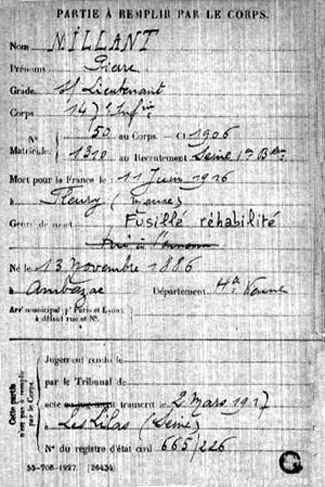 PARTIE À REMPLIR PAR LE CORPS.
Nom MILLANT
Prénoms Pierre
Grade S/ Lieutenant
Corps 147e Infie
N° 50 au Corps. — Cl 1906
Matricule. 1310 au Recrutement Seine 1er Bau
Mort pour la France le 11 Juin 1916
à Fleury (Meuse)
Genre de mort Fusillé réhabilité
Tué à l'ennemi
Né le 13 Novembre 1886
à Ambazac Département Hte Vienne
Arrt municipal (pr Paris et Lyon),
à défaut rue et N°.
Cette partie n'est pas à remplir par le Corps.
Jugement rendu le
par le Tribunal de
acte transcrit le 2 Mars 1917
à Les Lilas (Seine)
N° du registre d'état civil 665/226
55-708-1927. [26434]